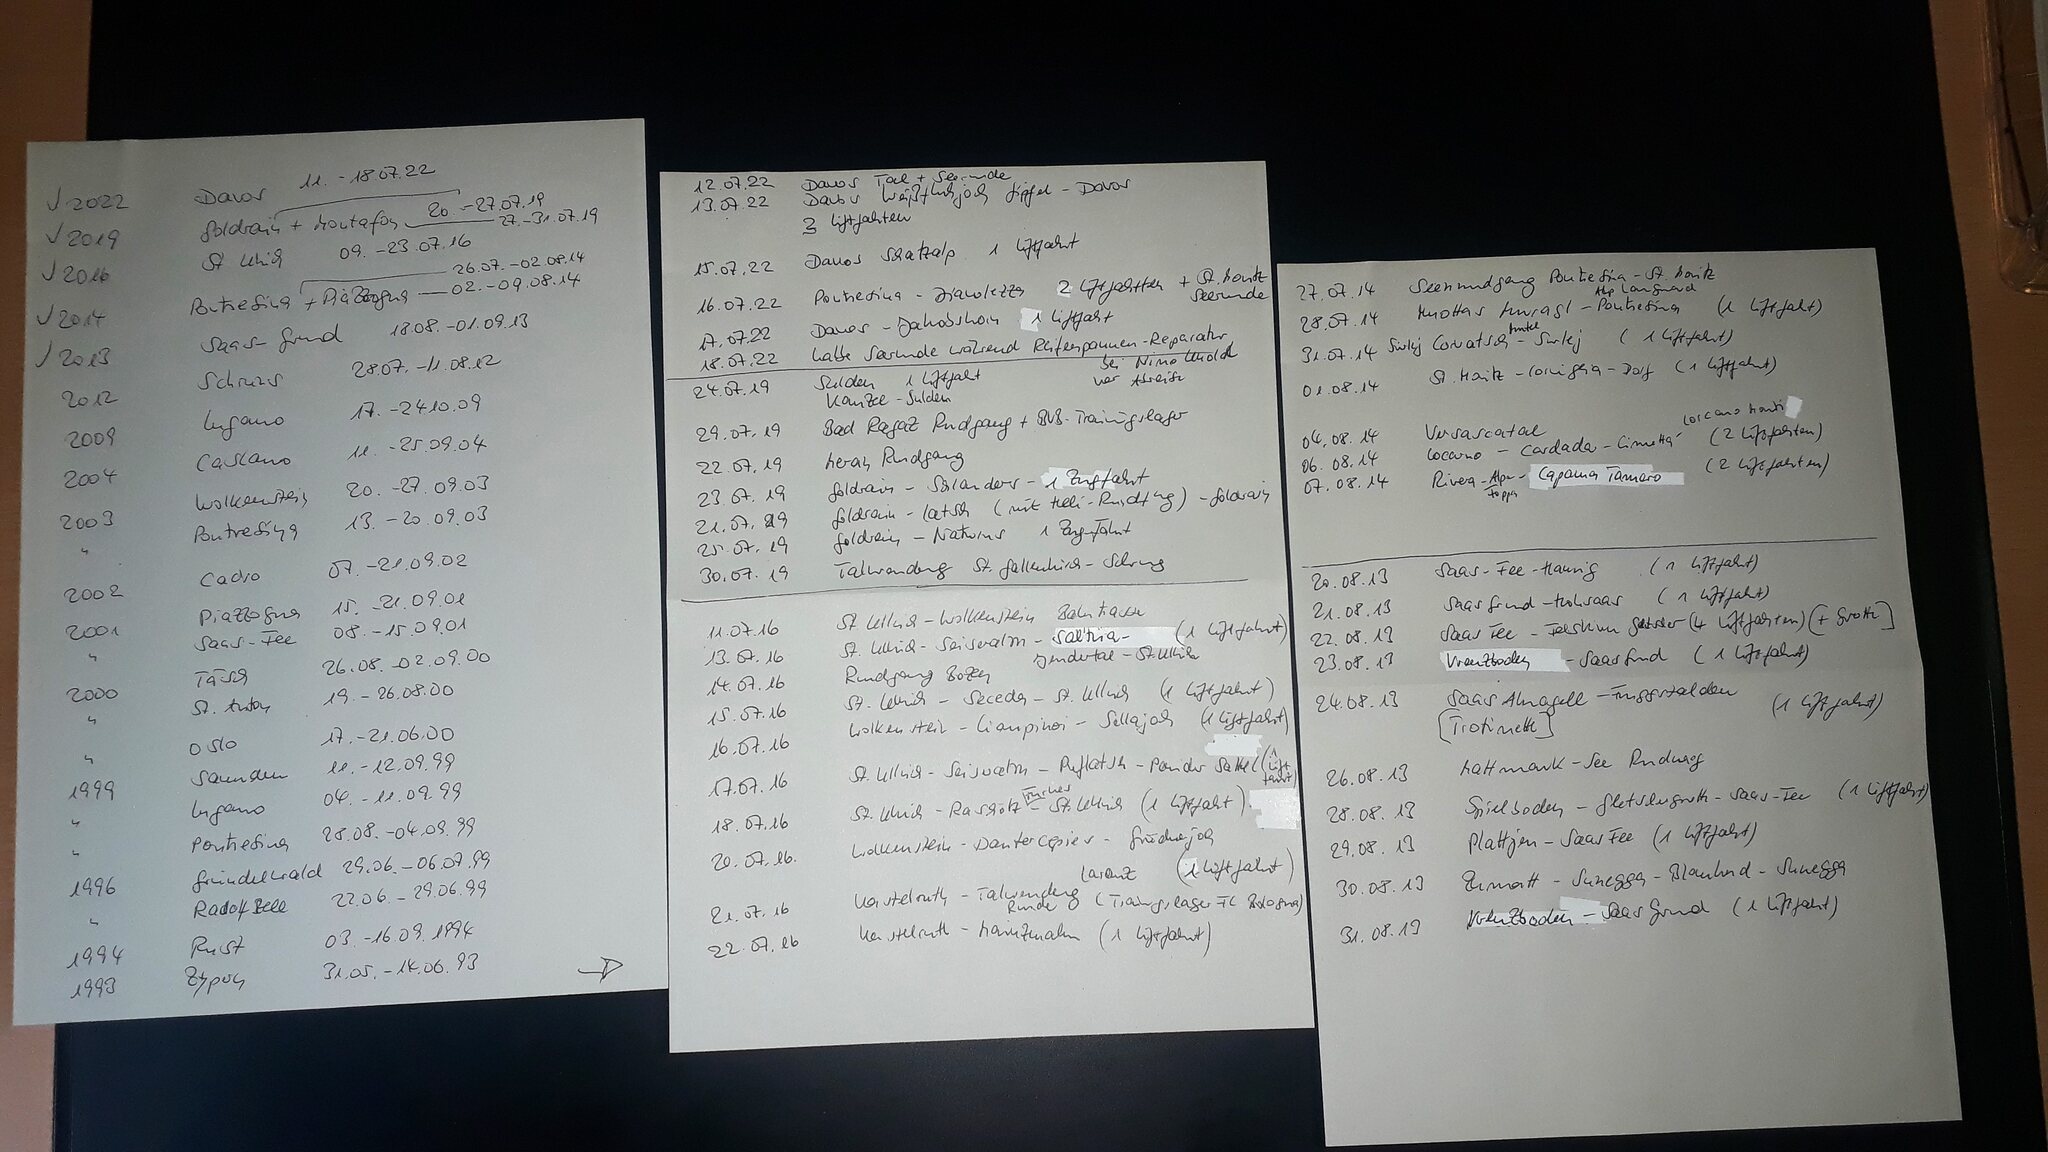 ✓ 2022 Davos 11. - 18.07.22
✓ 2019 Goldrain + Montafon 20. - 27.07.19
27. - 31.07.19
✓ 2016 St. Ulrich 09. - 23.07.16
✓ 2014 Pontresina + Piazzogna 26.07. - 02.08.14
02. - 09.08.14
✓ 2013 Saas-Grund 18.08. - 01.09.13
2012 Schruns 28.07. - 11.08.12
2009 Lugano 17. - 24.10.09
2004 Caslano 11. - 25.09.04
2003 Wolkenstein 20. - 27.09.03
" Pontresina 13. - 20.09.03
2002 Cadro 07. - 21.09.02
2001 Piazzogna 15. - 21.09.01
" Saas-Fee 08. - 15.09.01
2000 Täsch 26.08. - 02.09.00
" St. Anton 19. - 26.08.00
" Oslo 17. - 21.06.00
1999 11. - 12.09.99
" Lugano 04. - 11.09.99
" Pontresina 28.08. - 04.09.99
1996 Grindelwald 29.06. - 06.07.99
" Radolfzell 22.06. - 29.06.99
1994 Rust 03. - 16.09.1994
1993 Zypern 31.05. - 14.06.93
→
12.07.22 Davos Tal + Seerunde
13.07.22 Davos Weißfluhjoch Gipfel - Davos
3 Liftfahrten
15.07.22 Davos Schatzalp 1 Liftfahrt
16.07.22 Pontresina - Diavolezza 2 Liftfahrten + St. Moritz
Seerunde
17.07.22 Davos - Jakobshorn 1 Liftfahrt
18.07.22 halbe Seerunde während Reifenpannen-Reparatur
bei Nino
vor Abreise
24.07.19 Sulden 1 Liftfahrt
Kanzel - Sulden
29.07.19 Bad Ragaz Rundgang + BVB-Trainingslager
22.07.19 Meran Rundgang
23.07.19 Goldrain - Schlanders - 1 Zugfahrt
21.07.19 Goldrain - Latsch (mit Heli-Rundflug) - Goldrain
25.07.19 Goldrain - Naturns 1 Zugfahrt
30.07.19 Talwanderung St. Gallenkirch - Schruns
11.07.16 St. Ulrich - Wolkenstein Bahntrasse
13.07.16 St. Ulrich - Seiseralm - Saltria - (1 Liftfahrt)
Jendertal - St. Ulrich
14.07.16 Rundgang Bozen
15.07.16 St. Ulrich - Seceda - St. Ulrich (1 Liftfahrt)
16.07.16 Wolkenstein - Ciampinoi - Sellajoch (1 Liftfahrt)
17.07.16 St. Ulrich - Seiseralm - Puflatsch - Panider Sattel (1 Liftfahrt)
18.07.16 St. Ulrich - Raschötz - St. Ulrich (1 Liftfahrt)
20.07.16. Wolkenstein - Dantercepies - Grödnerjoch
(1 Liftfahrt)
21.07.16 Kastelruth - Talwanderung
Runde (Trainingslager FC Bologna)
22.07.16 Kastelruth - Marinzenalm (1 Liftfahrt)
27.07.14 Seenrundgang Pontresina - St. Moritz
Alp Languard
28.07.14 Muottas Muragl - Pontresina (1 Liftfahrt)
31.07.14 Surlej Corvatsch - Surlej (1 Liftfahrt)
01.08.14 St. Moritz - Corviglia - Dorf (1 Liftfahrt)
04.08.14 Verzascatal
06.08.14 Locarno - Cardada - Cimetta (2 Liftfahrten)
07.08.14 Rivera - Alpe Foppa - Capanna Tamaro (2 Liftfahrten)
20.08.13 Saas-Fee - Hannig (1 Liftfahrt)
21.08.13 Saas Grund - Hohsaas (1 Liftfahrt)
22.08.13 Saas Fee - Felskinn Gletscher (4 Liftfahrten) (+ Grotte]
23.08.13 Kreuzboden - Saas Grund (1 Liftfahrt)
24.08.13 Saas Almagell - Furggstalden (1 Liftfahrt)
[Trotinett]
26.08.13 Mattmark-See Rundweg
28.08.13 Spielboden - Gletschergrotte - Saas-Fee (1 Liftfahrt)
29.08.13 Plattjen - Saas Fee (1 Liftfahrt)
30.08.13 Zermatt - Sunegga - Blauherd - Sunegga
31.08.13 Kreuzboden - Saas Grund (1 Liftfahrt)